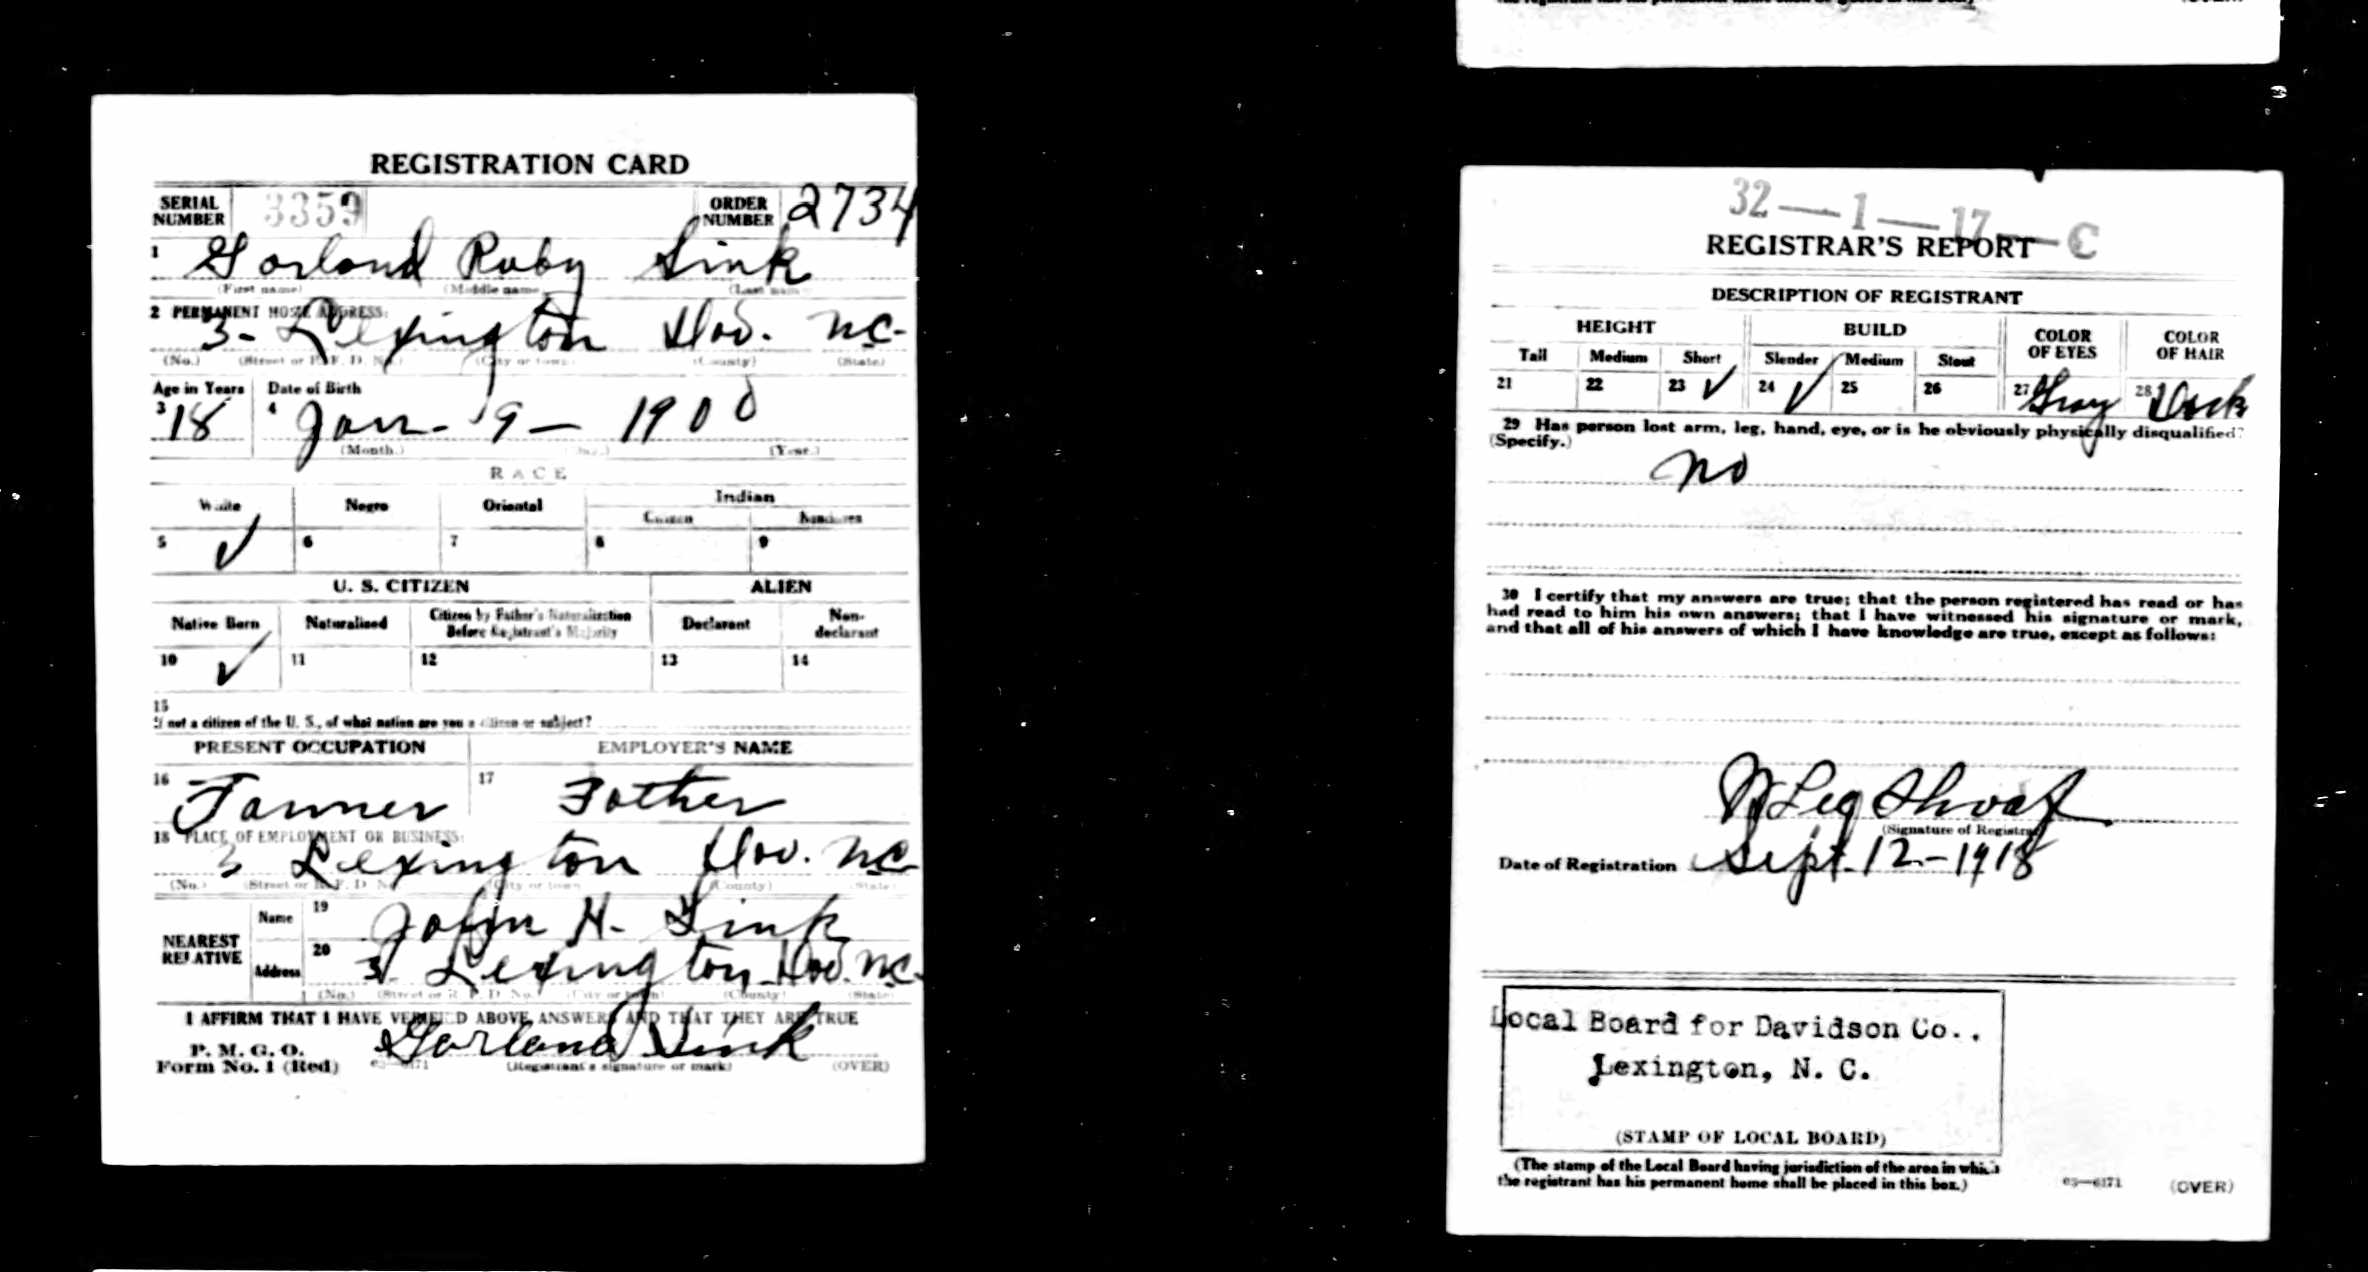 REGISTRATION CARD
SERIAL NUMBER 3359 ORDER NUMBER 2734
1 Garland Ruby Sink
(First name) (Middle name) (Last name)
2 PERMANENT HOME ADDRESS:
3- Lexington Dav. NC-
(No.) (Street or R. F. D. No.) (City or town) (County) (State)
Age in Years Date of Birth
3 18 4 Jan- 9- 1900
(Month.) (Day.) (Year.)
RACE
White Negro Oriental Indian
Citizen Noncitizen
5 ✓ 6 7 8 9
U. S. CITIZEN ALIEN
Native Born Naturalized Citizen by Father's Naturalization Before Registrant's Majority Declarant Non-declarant
10 ✓ 11 12 13 14
15
If not a citizen of the U. S., of what nation are you a citizen or subject?
PRESENT OCCUPATION EMPLOYER'S NAME
16 Farmer 17 Father
18 PLACE OF EMPLOYMENT OR BUSINESS:
3 Lexington Dav. NC-
(No.) (Street or R. F. D. No.) (City or town) (County) (State)
NEAREST RELATIVE
Name 19 John H. Sink
Address 20 3 Lexington Dav. NC-
(No.) (Street or R. F. D. No.) (City or town) (County) (State)
I AFFIRM THAT I HAVE VERIFIED ABOVE ANSWERS AND THAT THEY ARE TRUE
P. M. G. O.
Form No. 1 (Red) 03—6171 Garland Sink
(Registrant's signature or mark) (OVER)
(OVER)
32—1—17—C
REGISTRAR'S REPORT
DESCRIPTION OF REGISTRANT
HEIGHT BUILD COLOR OF EYES COLOR OF HAIR
Tall Medium Short Slender Medium Stout
21 22 23 ✓ 24 ✓ 25 26 27 Gray 28 Dark
29 Has person lost arm, leg, hand, eye, or is he obviously physically disqualified?
(Specify.)
No
30 I certify that my answers are true; that the person registered has read or has
had read to him his own answers; that I have witnessed his signature or mark,
and that all of his answers of which I have knowledge are true, except as follows:
Shoaf
(Signature of Registrar)
Date of Registration Sept. 12-1918
Local Board for Davidson Co.,
Lexington, N. C.
(STAMP OF LOCAL BOARD)
(The stamp of the Local Board having jurisdiction of the area in which
the registrant has his permanent home shall be placed in this box.)
03—6171 (OVER)